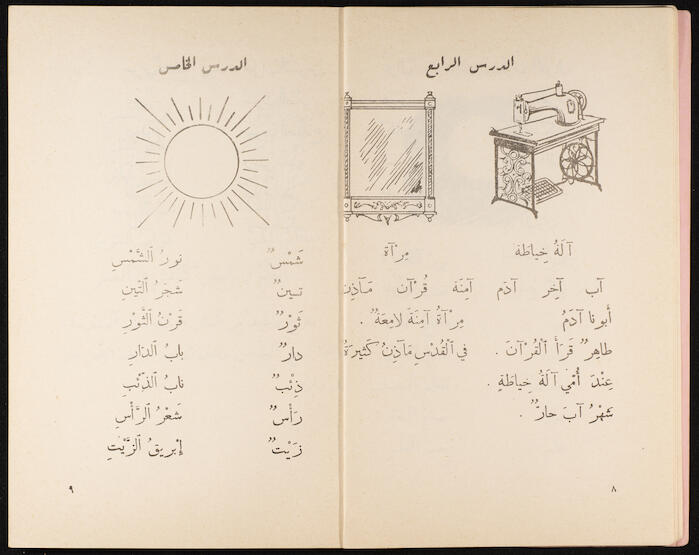 الدرس الرابع
آلَةُ خِياطَة مِرْآة
آب آخِر آدَم آمِنَة قُرْآن مَآذِن
أَبونا آدَمُ مِرْآةُ آمِنَةَ لامِعَةٌ .
طاهِرٌ قَرَأَ ٱلْقُرْآنَ . في ٱلْقُدْسِ مَآذِنُ كَثيرَةٌ
عِنْدَ أُمّي آلَةُ خِياطَةٍ .
شَهْرُ آبَ حارٌّ .
٨
الدرس الخامس
شَمْسٌ نورُ ٱلشَّمْسِ
تينٌ شَجَرُ ٱلتّينِ
ثَوْرٌ قَرْنُ ٱلثَّوْرِ
دارٌ بابُ ٱلدّارِ
ذِئْبٌ نابُ ٱلذِّئْبِ
رَأْسٌ شَعْرُ ٱلرَّأْسِ
زَيْتٌ إِبْريقُ ٱلزَّيْتِ
٩